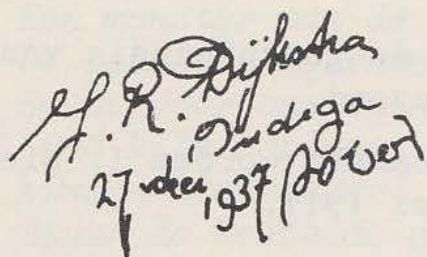 J. R. Dijkstra
Oudega
27 dec 1937